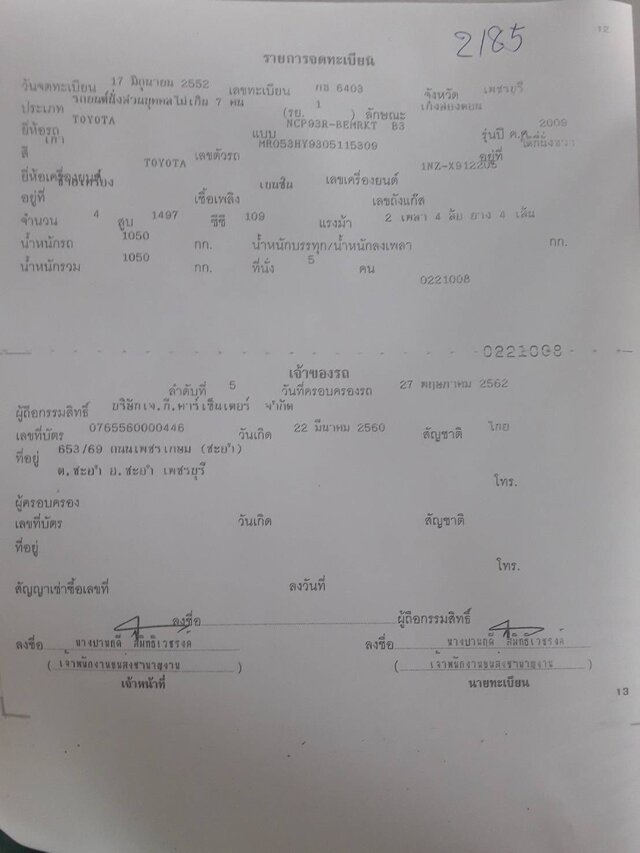 12
2185
รายการจดทะเบียน
วันจดทะเบียน 17 มิถุนายน 2552 เลขทะเบียน กธ 6403 จังหวัด เพชรบุรี
ประเภท รถยนต์นั่งส่วนบุคคลไม่เกิน 7 คน (รย. 1 ) ลักษณะ เก๋งสองตอน
ยี่ห้อรถ TOYOTA แบบ NCP93R-BEMRKT B3 รุ่นปี ค.ศ. 2009
สี เทา เลขตัวรถ MR053HY9305115309 อยู่ที่
ยี่ห้อเครื่องยนต์ TOYOTA เลขเครื่องยนต์ 1NZ-X912206
อยู่ที่ ซ้ายเครื่อง เชื้อเพลิง เบนซิน เลขถังแก๊ส
จำนวน 4 สูบ 1497 ซีซี 109 แรงม้า 2 เพลา 4 ล้อ ยาง 4 เส้น
น้ำหนักรถ 1050 กก. น้ำหนักบรรทุก/น้ำหนักลงเพลา กก.
น้ำหนักรวม 1050 กก. ที่นั่ง 5 คน
0221008
0221008
เจ้าของรถ
ลำดับที่ 5 วันที่ครอบครองรถ 27 พฤษภาคม 2562
ผู้ถือกรรมสิทธิ์ บริษัทเจ.ที.คาร์เซ็นเตอร์ จำกัด
เลขที่บัตร 0765560000446 วันเกิด 22 มีนาคม 2560 สัญชาติ ไทย
ที่อยู่ 653/69 ถนนเพชรเกษม (ชะอำ)
ต.ชะอำ อ.ชะอำ เพชรบุรี
โทร.
ผู้ครอบครอง
เลขที่บัตร วันเกิด สัญชาติ
ที่อยู่
โทร.
สัญญาเช่าซื้อเลขที่ ลงวันที่
ลงชื่อ ผู้ถือกรรมสิทธิ์
ลงชื่อ นางปานฤดี ลงชื่อ นางปานฤดี
( เจ้าพนักงานขนส่งชำนาญงาน ) ( เจ้าพนักงานขนส่งชำนาญงาน )
เจ้าหน้าที่ นายทะเบียน
13